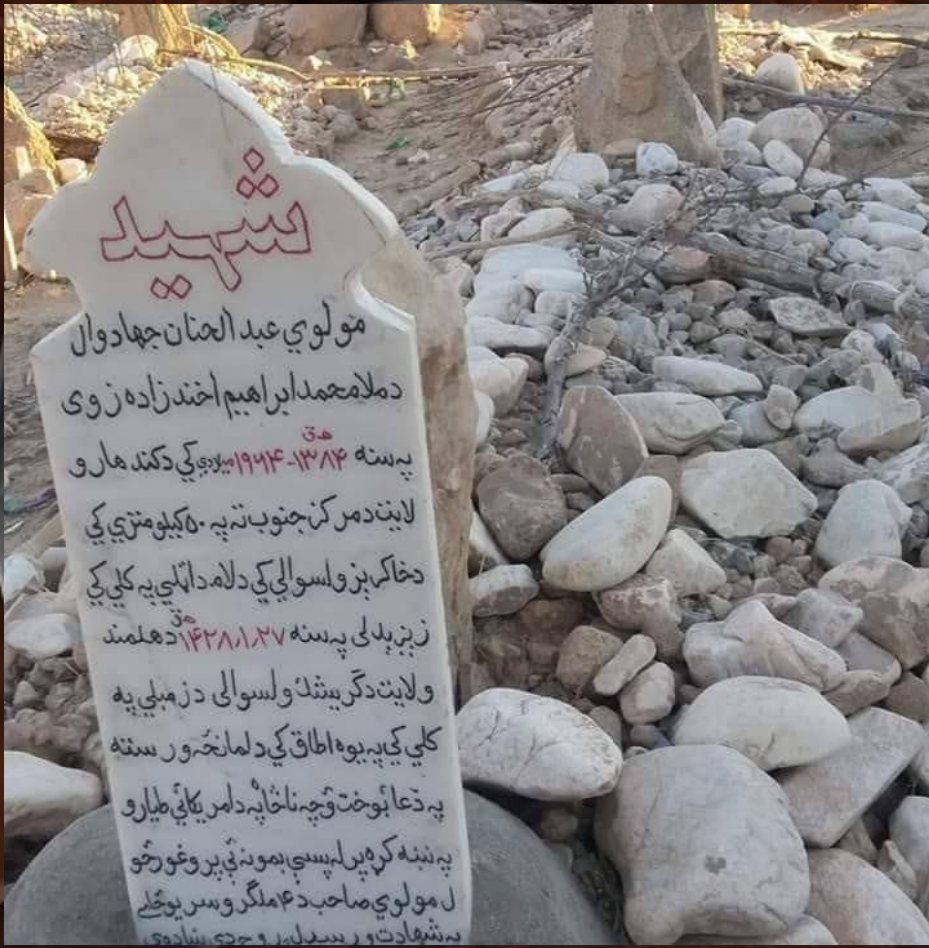 شهید
مولوي عبد الحنان جهادوال
د ملا محمد ابراهیم اخندزاده زوی
په سنه ۱۳۸۴ هـ ق - ۱۹۶۴ میلادي کي د کندهار و
لایت د مرکز جنوب ته په ۵۰ کیلو متری کي
د خاکریز ولسوالي کي د لام د اټلي په کلي کي
زیږېدلی په سنه ۱۴۲۸٫۱٫۲۷ هـ ق د هلمند
ولایت د گریشک ولسوالی د زمبلي په
کلي کي په یوه اطاق کي د لمانځه ورسته
په دعا بوخت ؤ چه ناڅاپه د امریکائي طیارو
په نښه کړه پرله پسې بمونه ئې پر وغورځو
ل مولوي صاحب د ۴ ملگرو سره یوځای
په شهادت ورسېدل روح دې ښادوي